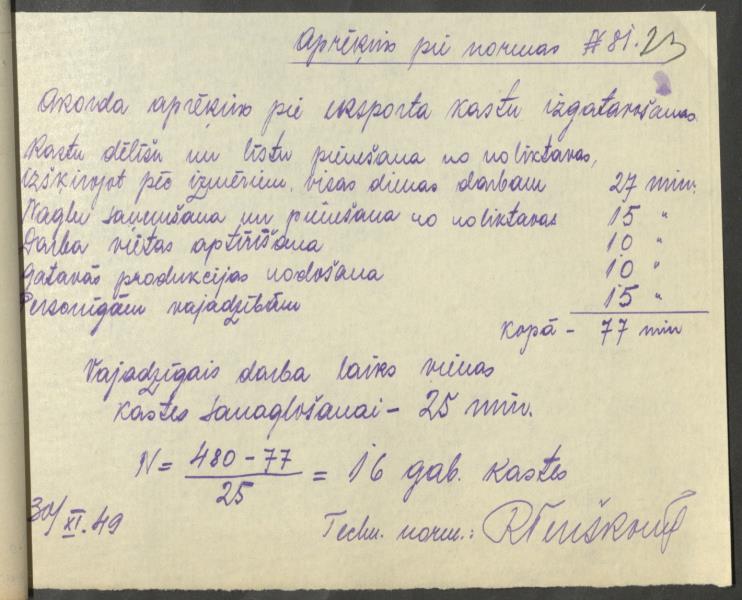 Aprēķins pie normas № 81. 23
Akorda aprēķins pie eksporta kastu izgatavošanas
Kastu dēlīšu un līstu pienešana no noliktavas,
izšķirojot pēc izmēriem, visas dienas darbam 27 min.
Naglu saņemšana un pienešana no noliktavas 15 "
Darba vietas aptīrīšana 10 "
Gatavās produkcijas nodošana 10 "
Personīgām vajadzībām 15 "
Kopā - 77 min
Vajadzīgais darba laiks vienas
kastes sanaglošanai - 25 min.
N = 480 - 77 / 25 = 16 gab. kastes
30/XI.49 Techn. norm.: